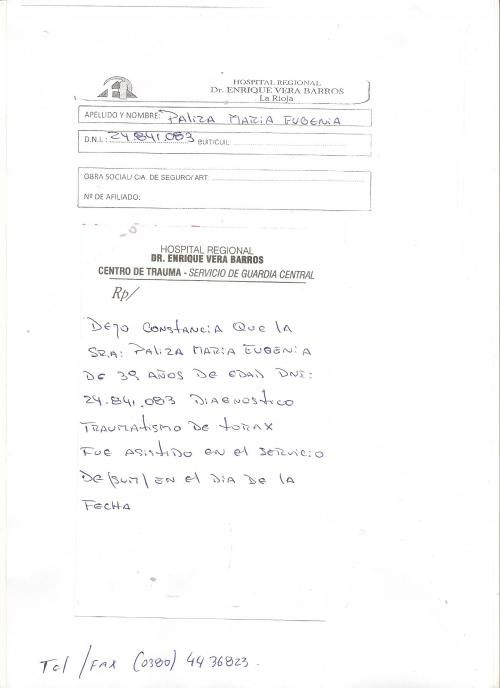 HOSPITAL REGIONAL
Dr. ENRIQUE VERA BARROS
La Rioja
APELLIDO Y NOMBRE: PALIZA MARIA EUGENIA
D.N.I.: 24.841.083 BUIT/CUIL:
OBRA SOCIAL/ CIA. DE SEGURO/ ART.
Nº DE AFILIADO:
HOSPITAL REGIONAL
DR. ENRIQUE VERA BARROS
CENTRO DE TRAUMA - SERVICIO DE GUARDIA CENTRAL
Rp/
DEJO CONSTANCIA QUE LA
SRA: PALIZA MARIA EUGENIA
DE 39 AÑOS DE EDAD DNI:
24.841.083 DIAGNOSTICO
TRAUMATISMO DE TORAX
FUE ASISTIDO EN EL SERVICIO
DE /SUM/ EN EL DIA DE LA
FECHA
Tel /FAX (0380) 4436823.